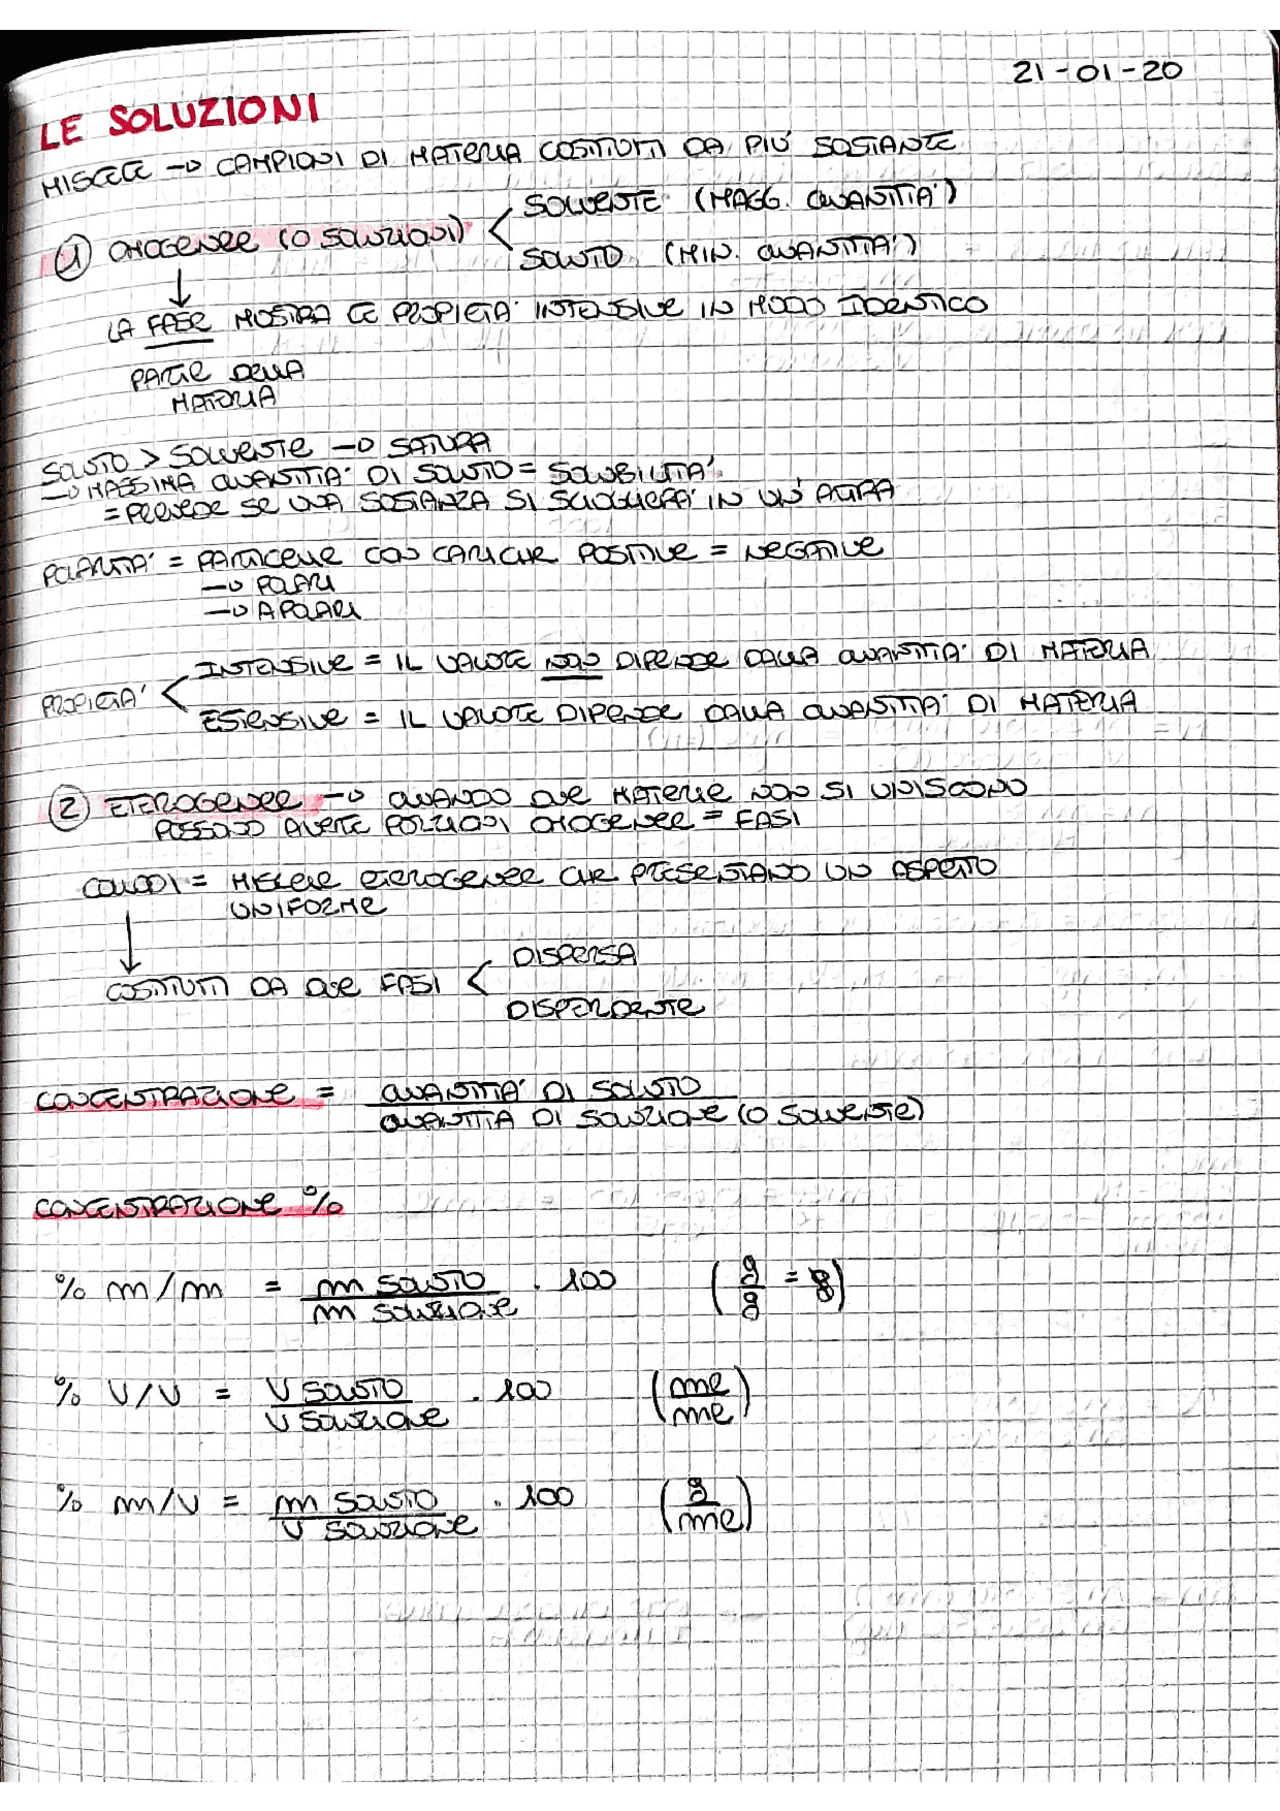 21-01-20
LE SOLUZIONI
MISCELE → CAMPIONI DI MATERIA COSTITUITI DA PIÙ SOSTANZE
① OMOGENEE (O SOLUZIONI) < SOLVENTE (MAGG. QUANTITA')
SOLUTO (MIN. QUANTITA')
↓
LA FASE MOSTRA LE PROPIETA' INTENSIVE IN MODO IDENTICO
PARTE DELLA
MATERIA
SOLUTO > SOLVENTE → SATURA
→ MASSIMA QUANTITA' DI SOLUTO = SOLUBILITA'
= PREVEDE SE UNA SOSTANZA SI SCIOGLIERA' IN UN'ALTRA
POLARITA' = PARTICELLE CON CARICHE POSITIVE = NEGATIVE
→ POLARI
→ APOLARI
PROPIETA' < INTENSIVE = IL VALORE NON DIPENDE DALLA QUANTITA' DI MATERIA
ESTENSIVE = IL VALORE DIPENDE DALLA QUANTITA' DI MATERIA
② ETEROGENEE → QUANDO DUE MATERIE NON SI UNISCONO
POSSONO AVERE PORZIONI OMOGENEE = FASI
COLLOIDI = MISCELE ETEROGENEE CHE PRESENTANO UN ASPETTO
UNIFORME
↓
COSTITUITI DA DUE FASI < DISPERSA
DISPERDENTE
CONCENTRAZIONE = QUANTITA' DI SOLUTO
QUANTITA DI SOLUZIONE (O SOLVENTE)
CONCENTRAZIONE %
% m/m = m SOLUTO / m SOLUZIONE · 100 (g/g = g)
% V/V = V SOLUTO / V SOLUZIONE · 100 (ml/ml)
% m/V = m SOLUTO / V SOLUZIONE · 100 (g/ml)